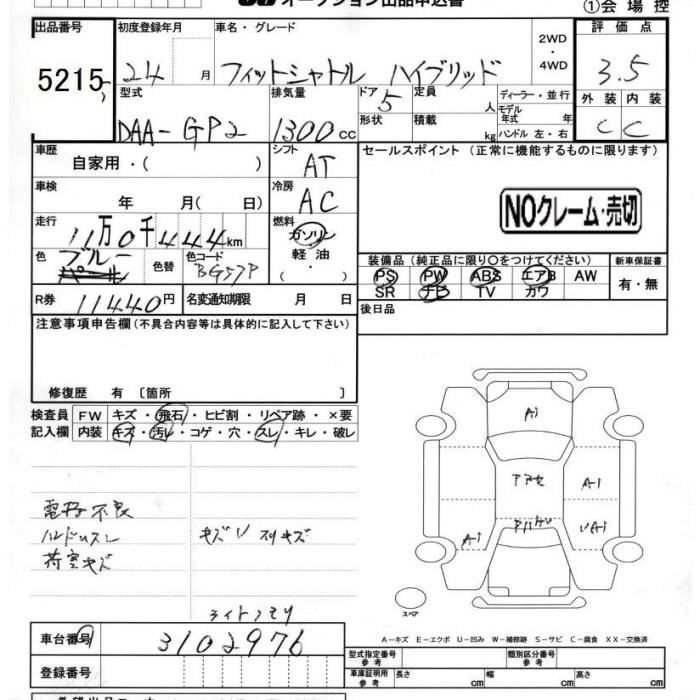 オークション出品申込書 ①会場控
出品番号 初度登録年月 車名・グレード 2WD・4WD 評価点
5215 24 月 フィットシャトル ハイブリッド 3.5
型式 排気量 ドア 5 定員 人 ディーラー・並行 外装 内装
DAA-GP2 1300cc 形状 積載 kg モデル年式 年 C C
ハンドル 左・右
車歴 シフト セールスポイント (正常に機能するものに限ります)
自家用・( ) AT
車検 冷房
年 月( 日) AC NOクレーム・売切
走行 燃料
11万0千444km ガソリン
軽油・
色 ブルー パール 色替 色コード BG57P
装備品 (純正品に限り○をつけてください) 新車保証書
PS PW ABS エアB AW 有・無
SR ナビ TV カワ
R券 11440円 名変通知期限 月 日 後日品
注意事項申告欄 (不具合内容等は具体的に記入して下さい)
修復歴 有 〔箇所 〕
検査員 FW キズ・飛石・ヒビ割・リペア跡・×要
記入欄 内装 キズ・汚レ・コゲ・穴・スレ・キレ・破レ
A1
A1
A1
電格不良
ハンドルスレ キズU スリキズ
荷室キズ
ライトクモリ
スペア
A-キズ E-エクボ U-凹み W-補修跡 S-サビ C-腐食 XX-交換済
車台番号 3102976
型式指定番号 参考 類別区分番号 参考
登録番号 車庫証明用 参考 長さ cm 幅 cm 高さ cm